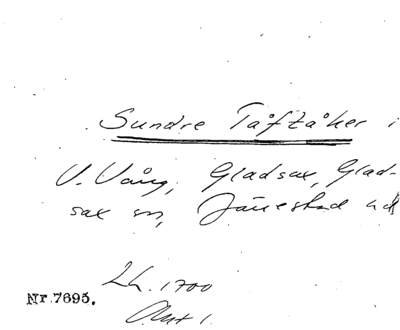 Sundre Tåftåker i
V. Vång, Gladsax, Glad-
sax sn, Järrestad hd
LL. 1700
Nr 7695.